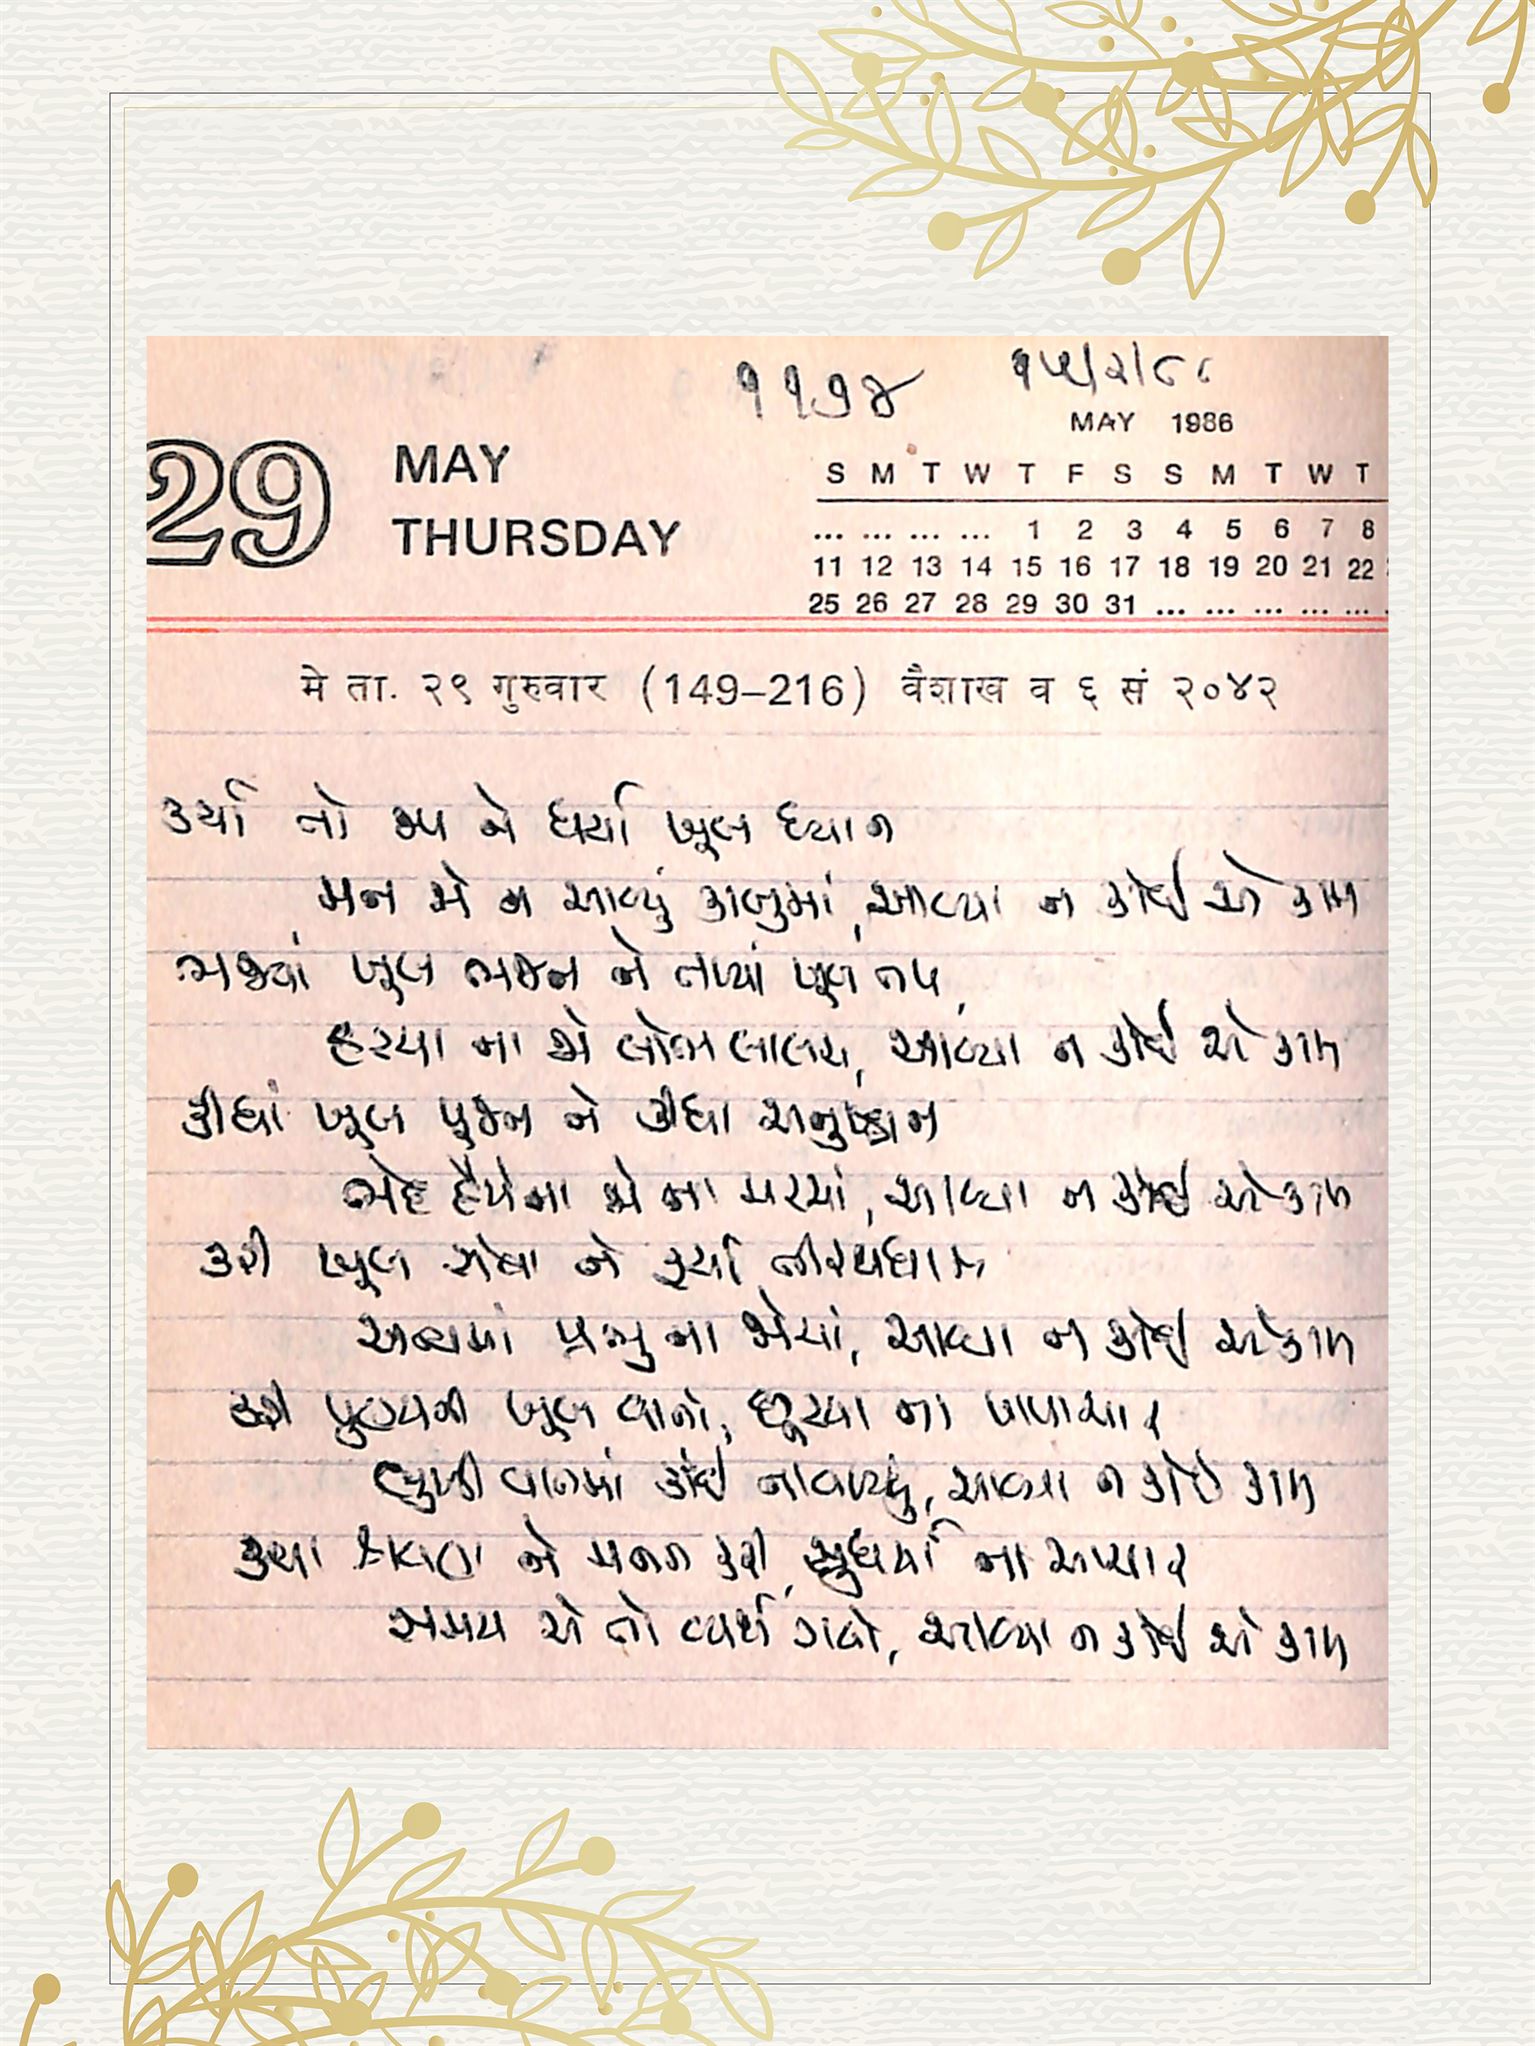 ૧૧૭૪ ૧૫/૨/૮૮
MAY 1986
29 MAY
THURSDAY
S M T W T F S S M T W T
... ... ... ... 1 2 3 4 5 6 7 8
11 12 13 14 15 16 17 18 19 20 21 22
25 26 27 28 29 30 31 ... ... ... ... ...
मे ता. २९ गुरुवार (149–216) वैशाख व ६ सं २०४२
કર્યા તો જપ ને ધર્યા ખૂબ ધ્યાન
મન જો ન આવ્યું કાબુમાં, આવ્યા ન કોઈ એ કામ
ભજ્યાં ખૂબ ભજન ને તપ્યાં ખૂબ તપ,
હટયા ના જો લોભ લાલચ, આવ્યા ન કોઈ એ કામ
કીધાં ખૂબ પૂજન ને કીધા અનુષ્ઠાન
ભેદ હૈયેના જો ના મટયાં, આવ્યા ન કોઈ એ કામ
કરી ખૂબ સેવા ને ફર્યા તીરથધામ
અન્યમાં પ્રભુ ના જોયાં, આવ્યા ન કોઈ એ કામ
કરી પુણ્યની ખૂબ વાતો, છૂટયા ના પાપાચાર
સુખી વાતમાં કાંઈ નાવળ્યું, આવ્યા ન કોઈ કામ
કર્યા શ્રવણ ને મનન કરી, સુધર્યા ના આચાર
સમય એ તો વ્યર્થ ગયો, આવ્યા ન કોઈ એ કામ